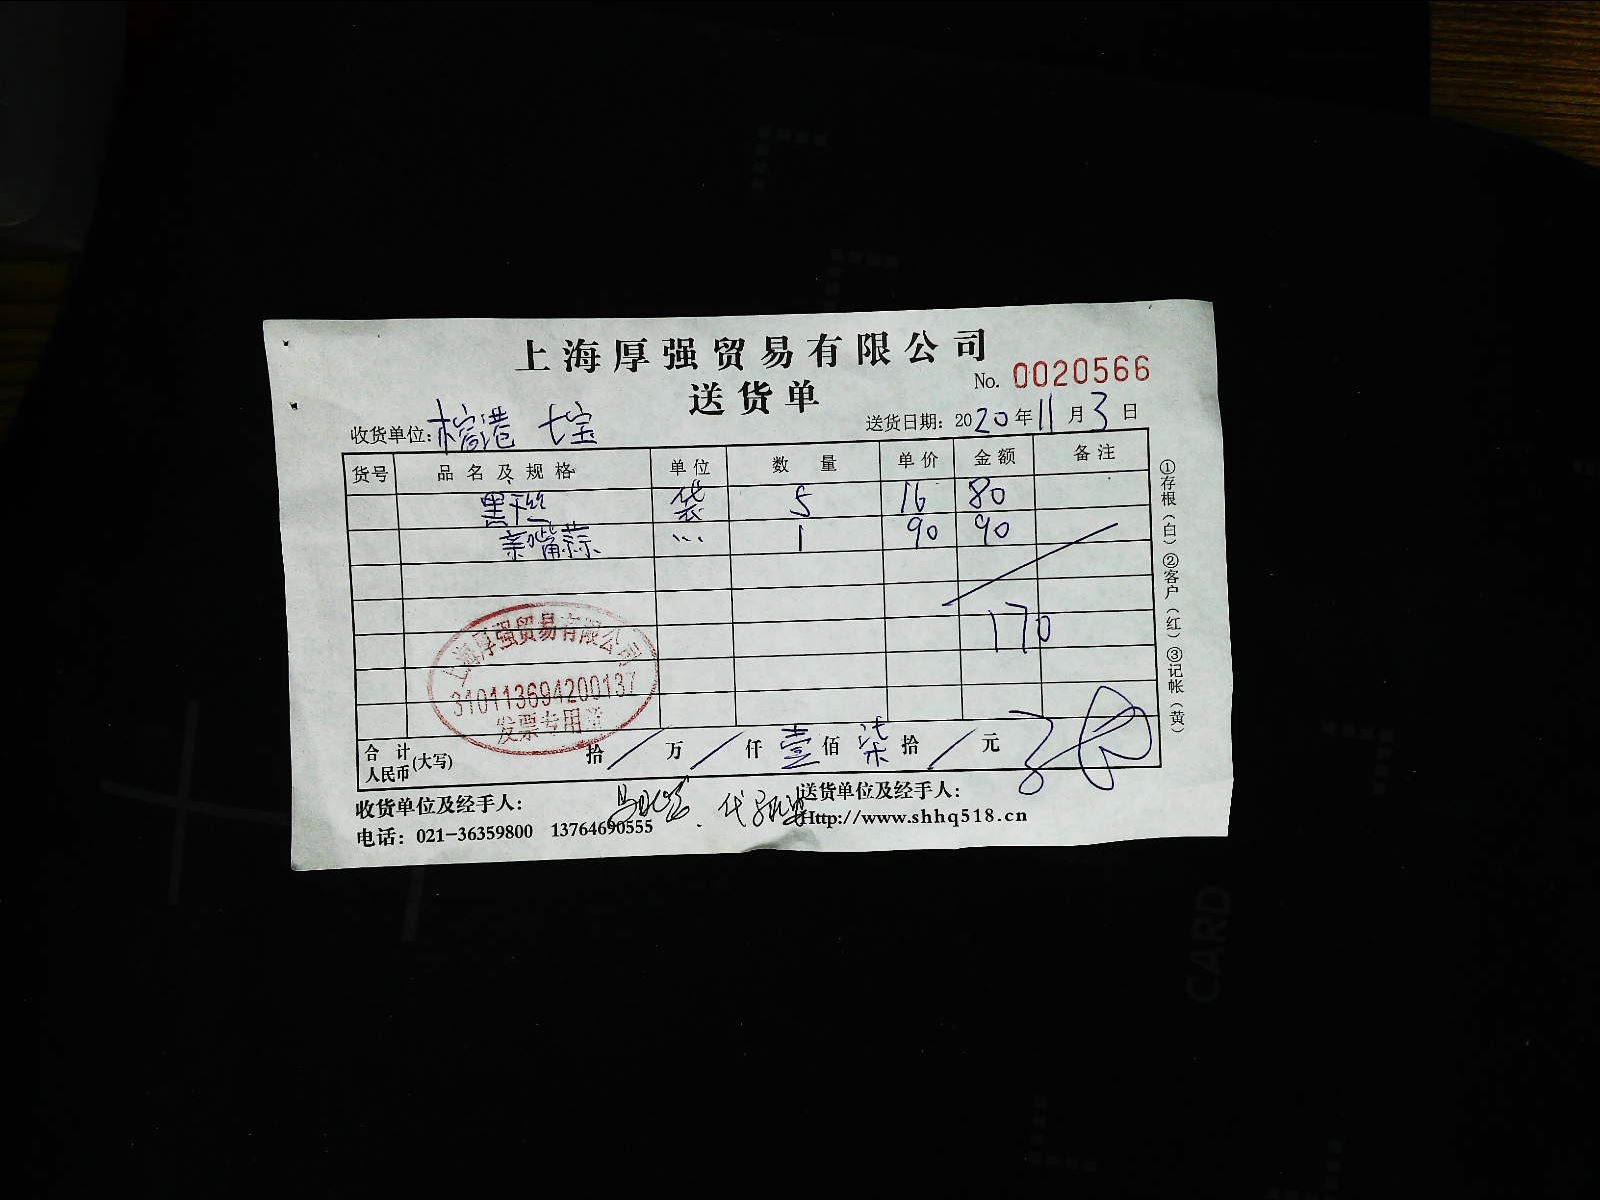 上海厚强贸易有限公司
No. 0020566
送货单
收货单位：榕港 七宝 送货日期：2020年11月3日
货号 品名及规格 单位 数量 单价 金额 备注
黑干丝 袋 5 16 80
亲嘴蒜 … 1 90 90
170
上海厚强贸易有限公司
310113694200137
发票专用章
合计人民币(大写) 拾 / 万 / 仟 壹 佰 柒 拾 / 元
收货单位及经手人： 送货单位及经手人：
电话：021-36359800 13764690555 Http://www.shhq518.cn
①存根（白）②客户（红）③记帐（黄）
CARD